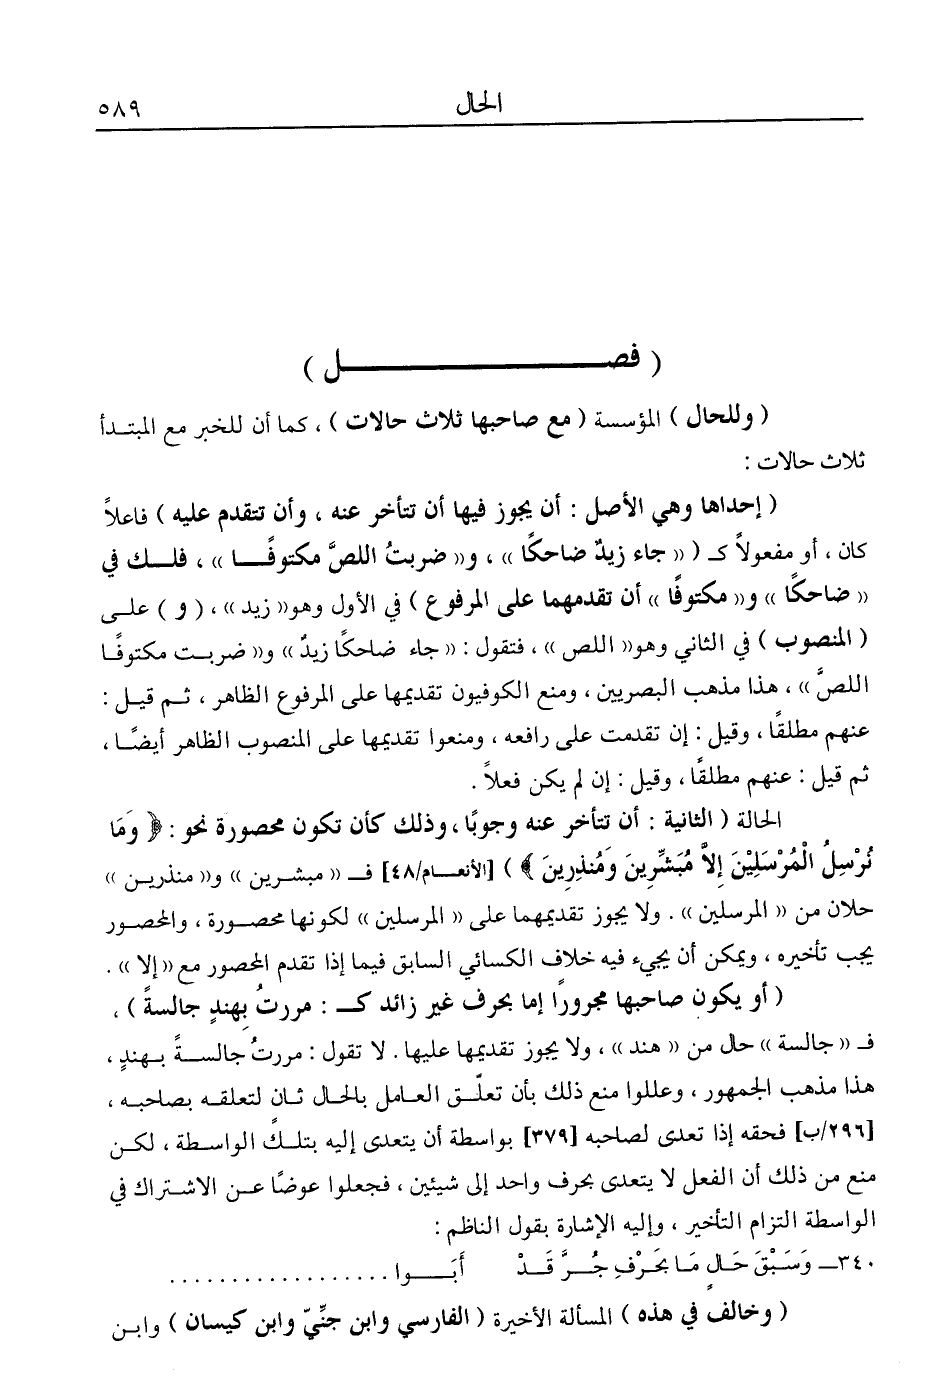 الحال ٥٨٩
( فصــــــــــــــــل )
( وللحال ) المؤسسة ( مع صاحبها ثلاث حالات ) ، كما أن للخبر مع المبتدأ
ثلاث حالات :
( إحداها وهي الأصل : أن يجوز فيها أن تتأخر عنه ، وأن تتقدم عليه ) فاعلاً
كان ، أو مفعولاً كـ ( « جاء زيدٌ ضاحكًا » ، و« ضربتُ اللصَّ مكتوفًا » ، فلك في
« ضاحكًا » و« مكتوفًا » أن تقدمهما على المرفوع ) في الأول وهو« زيد » ، ( و ) على
( المنصوب ) في الثاني وهو« اللص » ، فتقول : « جاء ضاحكًا زيدٌ » و« ضربت مكتوفًا
اللصَّ » ، هذا مذهب البصريين ، ومنع الكوفيون تقديمها على المرفوع الظاهر ، ثم قيل :
عنهم مطلقًا ، وقيل : إن تقدمت على رافعه ، ومنعوا تقديمها على المنصوب الظاهر أيضًا ،
ثم قيل : عنهم مطلقًا ، وقيل : إن لم يكن فعلاً .
الحالة ( الثانية : أن تتأخر عنه وجوبًا ، وذلك كأن تكون محصورة نحو : ﴿ وَمَا
نُرْسِلُ الْمُرْسَلِيْنَ إِلاَّ مُبَشِّرِينَ وَمُنذِرِينَ ﴾ ) [الأنعام/٤٨] فـ « مبشرين » و« منذرين »
حلان من « المرسلين » . ولا يجوز تقديمهما على « المرسلين » لكونها محصورة ، والمحصور
يجب تأخيره ، ويمكن أن يجيء فيه خلاف الكسائي السابق فيما إذا تقدم المحصور مع « إلا » .
( أو يكون صاحبها مجرورًا إما بحرف غير زائد كـ : مررتُ بِهندٍ جالسةً ) ،
فـ « جالسة » حال من « هند » ، ولا يجوز تقديمها عليها . لا تقول : مررتُ جالسةً بهندٍ ،
هذا مذهب الجمهور ، وعللوا منع ذلك بأن تعلّق العامل بالحال ثان لتعلقه بصاحبه ،
[٢٩٦/ب] فحقه إذا تعدى لصاحبه [٣٧٩] بواسطة أن يتعدى إليه بتلك الواسطة ، لكن
منع من ذلك أن الفعل لا يتعدى بحرف واحد إلى شيئين ، فجعلوا عوضًا عن الاشتراك في
الواسطة التزام التأخير ، وإليه الإشارة بقول الناظم :
٣٤٠ــ وَسَبْقَ حَالٍ مَا بِحَرْفٍ جُرَّ قَدْ أَبَوا ..................
( وخالف في هذه ) المسألة الأخيرة ( الفارسي وابن جنِّيّ وابن كيسان ) وابن